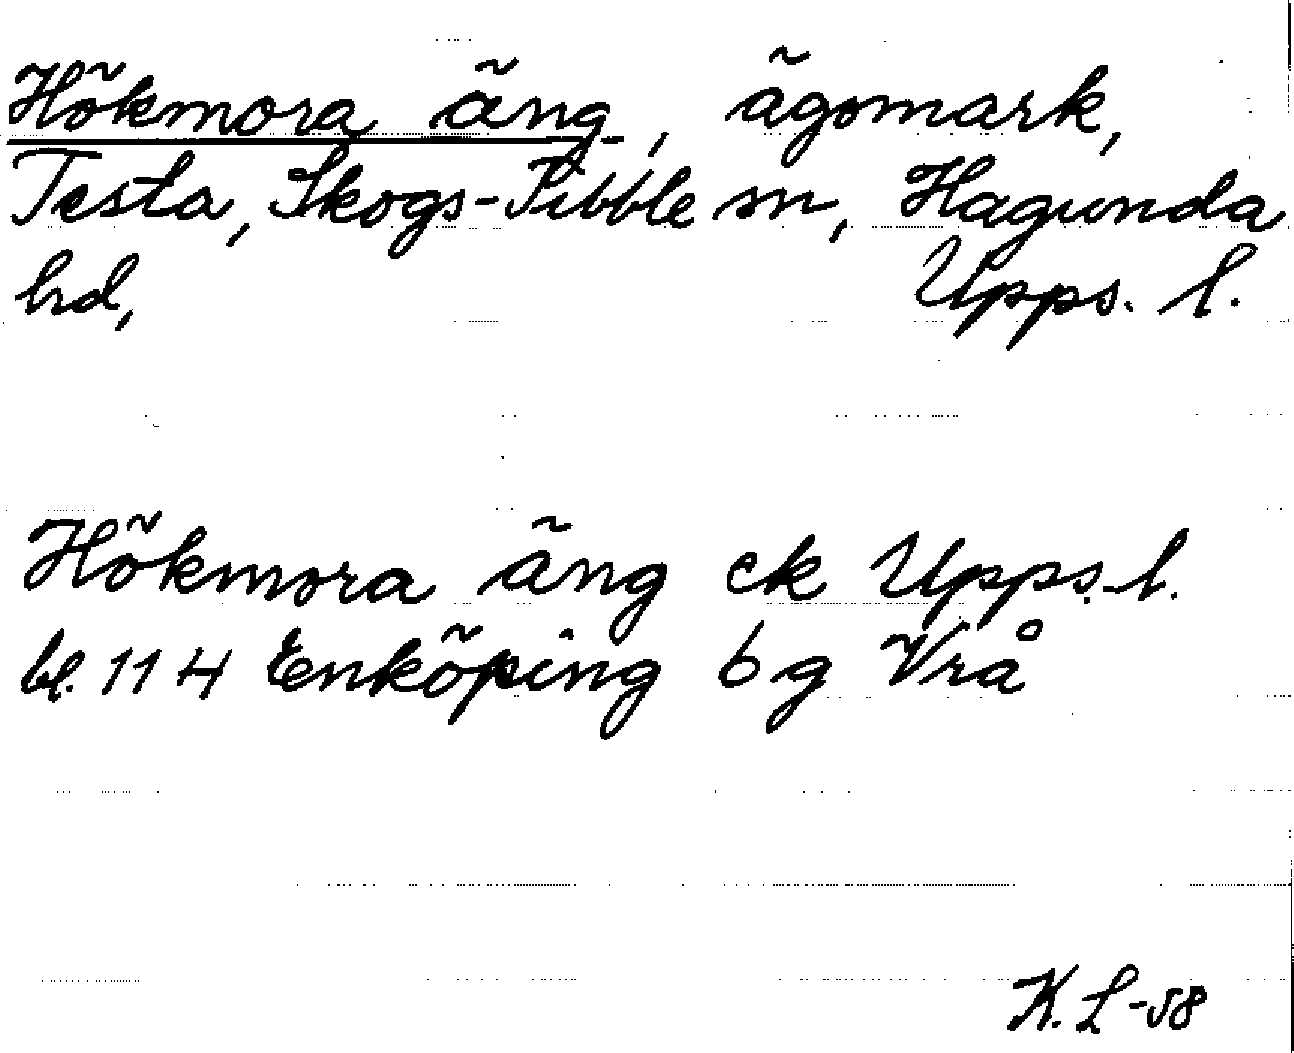 Hökmora äng, ägomark,
Testa, Skogs-Tibble sn, Hagunda
hd, Upps. l.
Hökmora äng ek Upps. l.
bl. 114 Enköping 6g Vrå
K. L -58